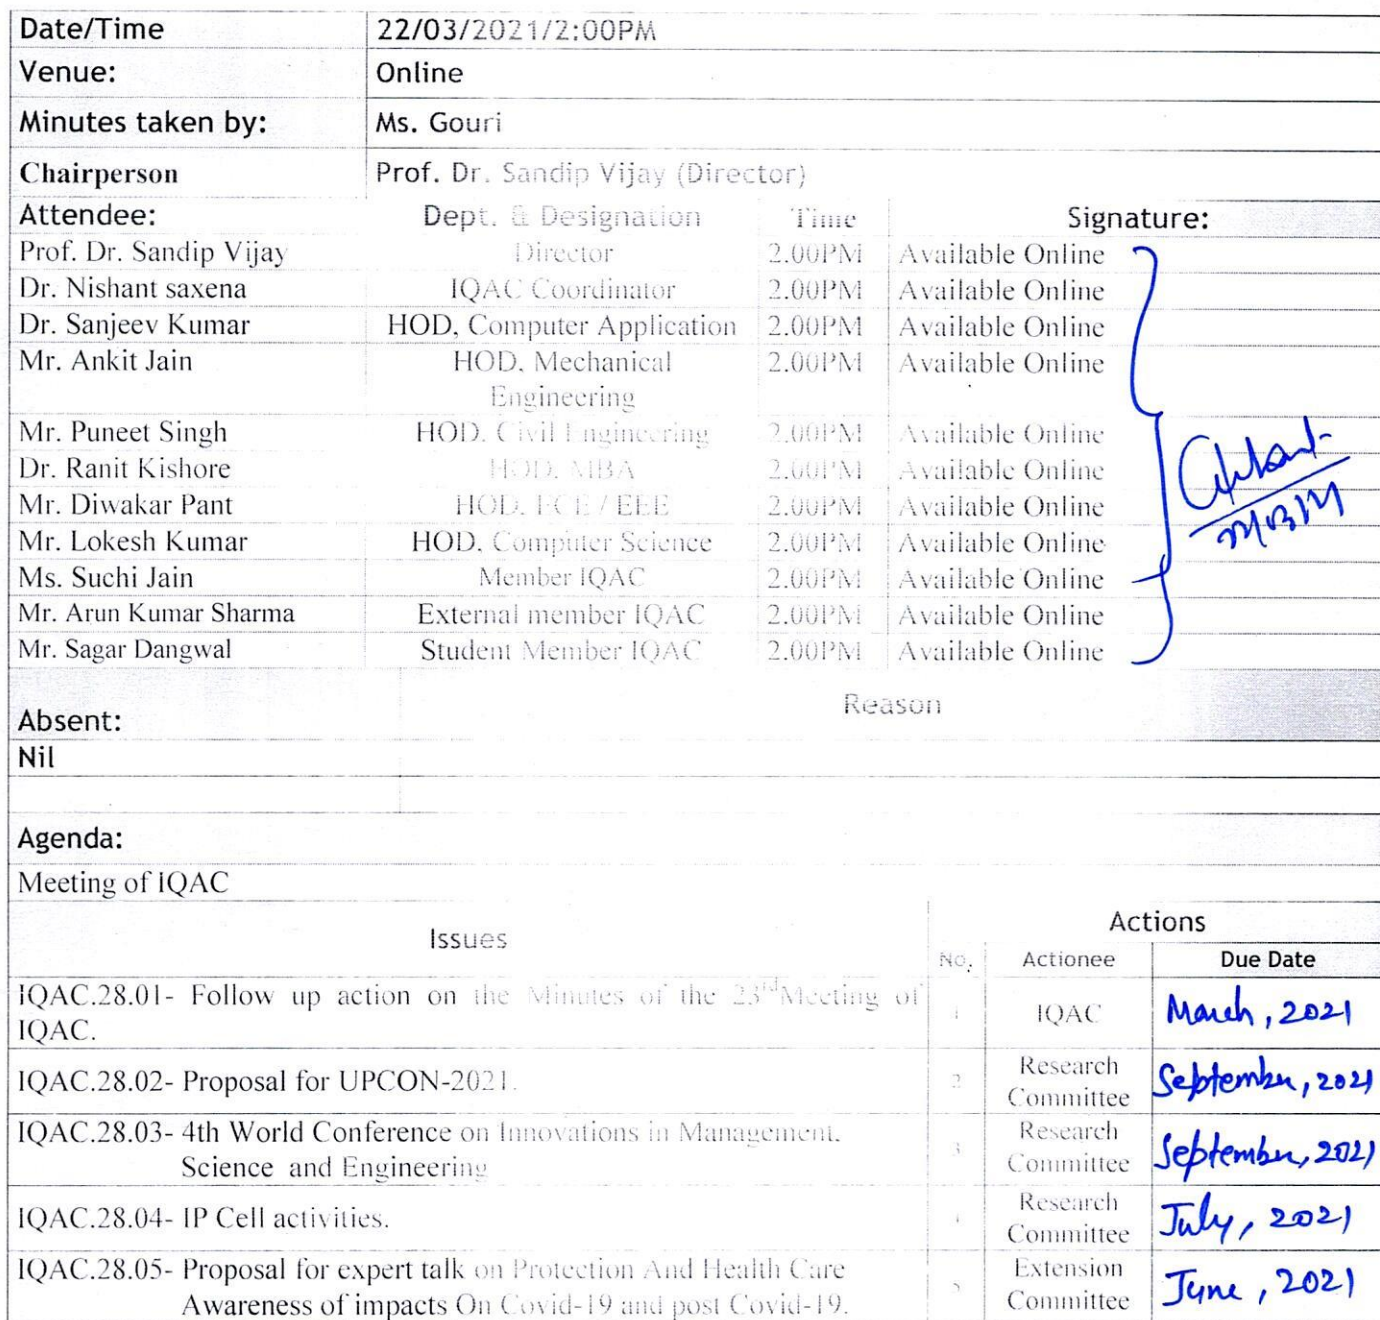 Date/Time 22/03/2021/2:00PM
Venue: Online
Minutes taken by: Ms. Gouri
Chairperson Prof. Dr. Sandip Vijay (Director)
Attendee: Dept. & Designation Time Signature:
Prof. Dr. Sandip Vijay Director 2.00PM Available Online
Dr. Nishant saxena IQAC Coordinator 2.00PM Available Online
Dr. Sanjeev Kumar HOD, Computer Application 2.00PM Available Online
Mr. Ankit Jain HOD, Mechanical 2.00PM Available Online
Engineering
Mr. Puneet Singh HOD, Civil Engineering 2.00PM Available Online
Dr. Ranit Kishore HOD, MBA 2.00PM Available Online
Mr. Diwakar Pant HOD, ECE / EEE 2.00PM Available Online
Mr. Lokesh Kumar HOD, Computer Science 2.00PM Available Online
Ms. Suchi Jain Member IQAC 2.00PM Available Online
Mr. Arun Kumar Sharma External member IQAC 2.00PM Available Online
Mr. Sagar Dangwal Student Member IQAC 2.00PM Available Online
Reason
Absent:
Nil
Agenda:
Meeting of IQAC
Issues Actions
No. Actionee Due Date
IQAC.28.01- Follow up action on the Minutes of the 23rd Meeting of
IQAC. 1 IQAC March, 2021
IQAC.28.02- Proposal for UPCON-2021. 2 Research
Committee September, 2021
IQAC.28.03- 4th World Conference on Innovations in Management, 3 Research
Science and Engineering Committee September, 2021
IQAC.28.04- IP Cell activities. 4 Research
Committee July, 2021
IQAC.28.05- Proposal for expert talk on Protection And Health Care 5 Extension
Awareness of impacts On Covid-19 and post Covid-19. Committee June, 2021